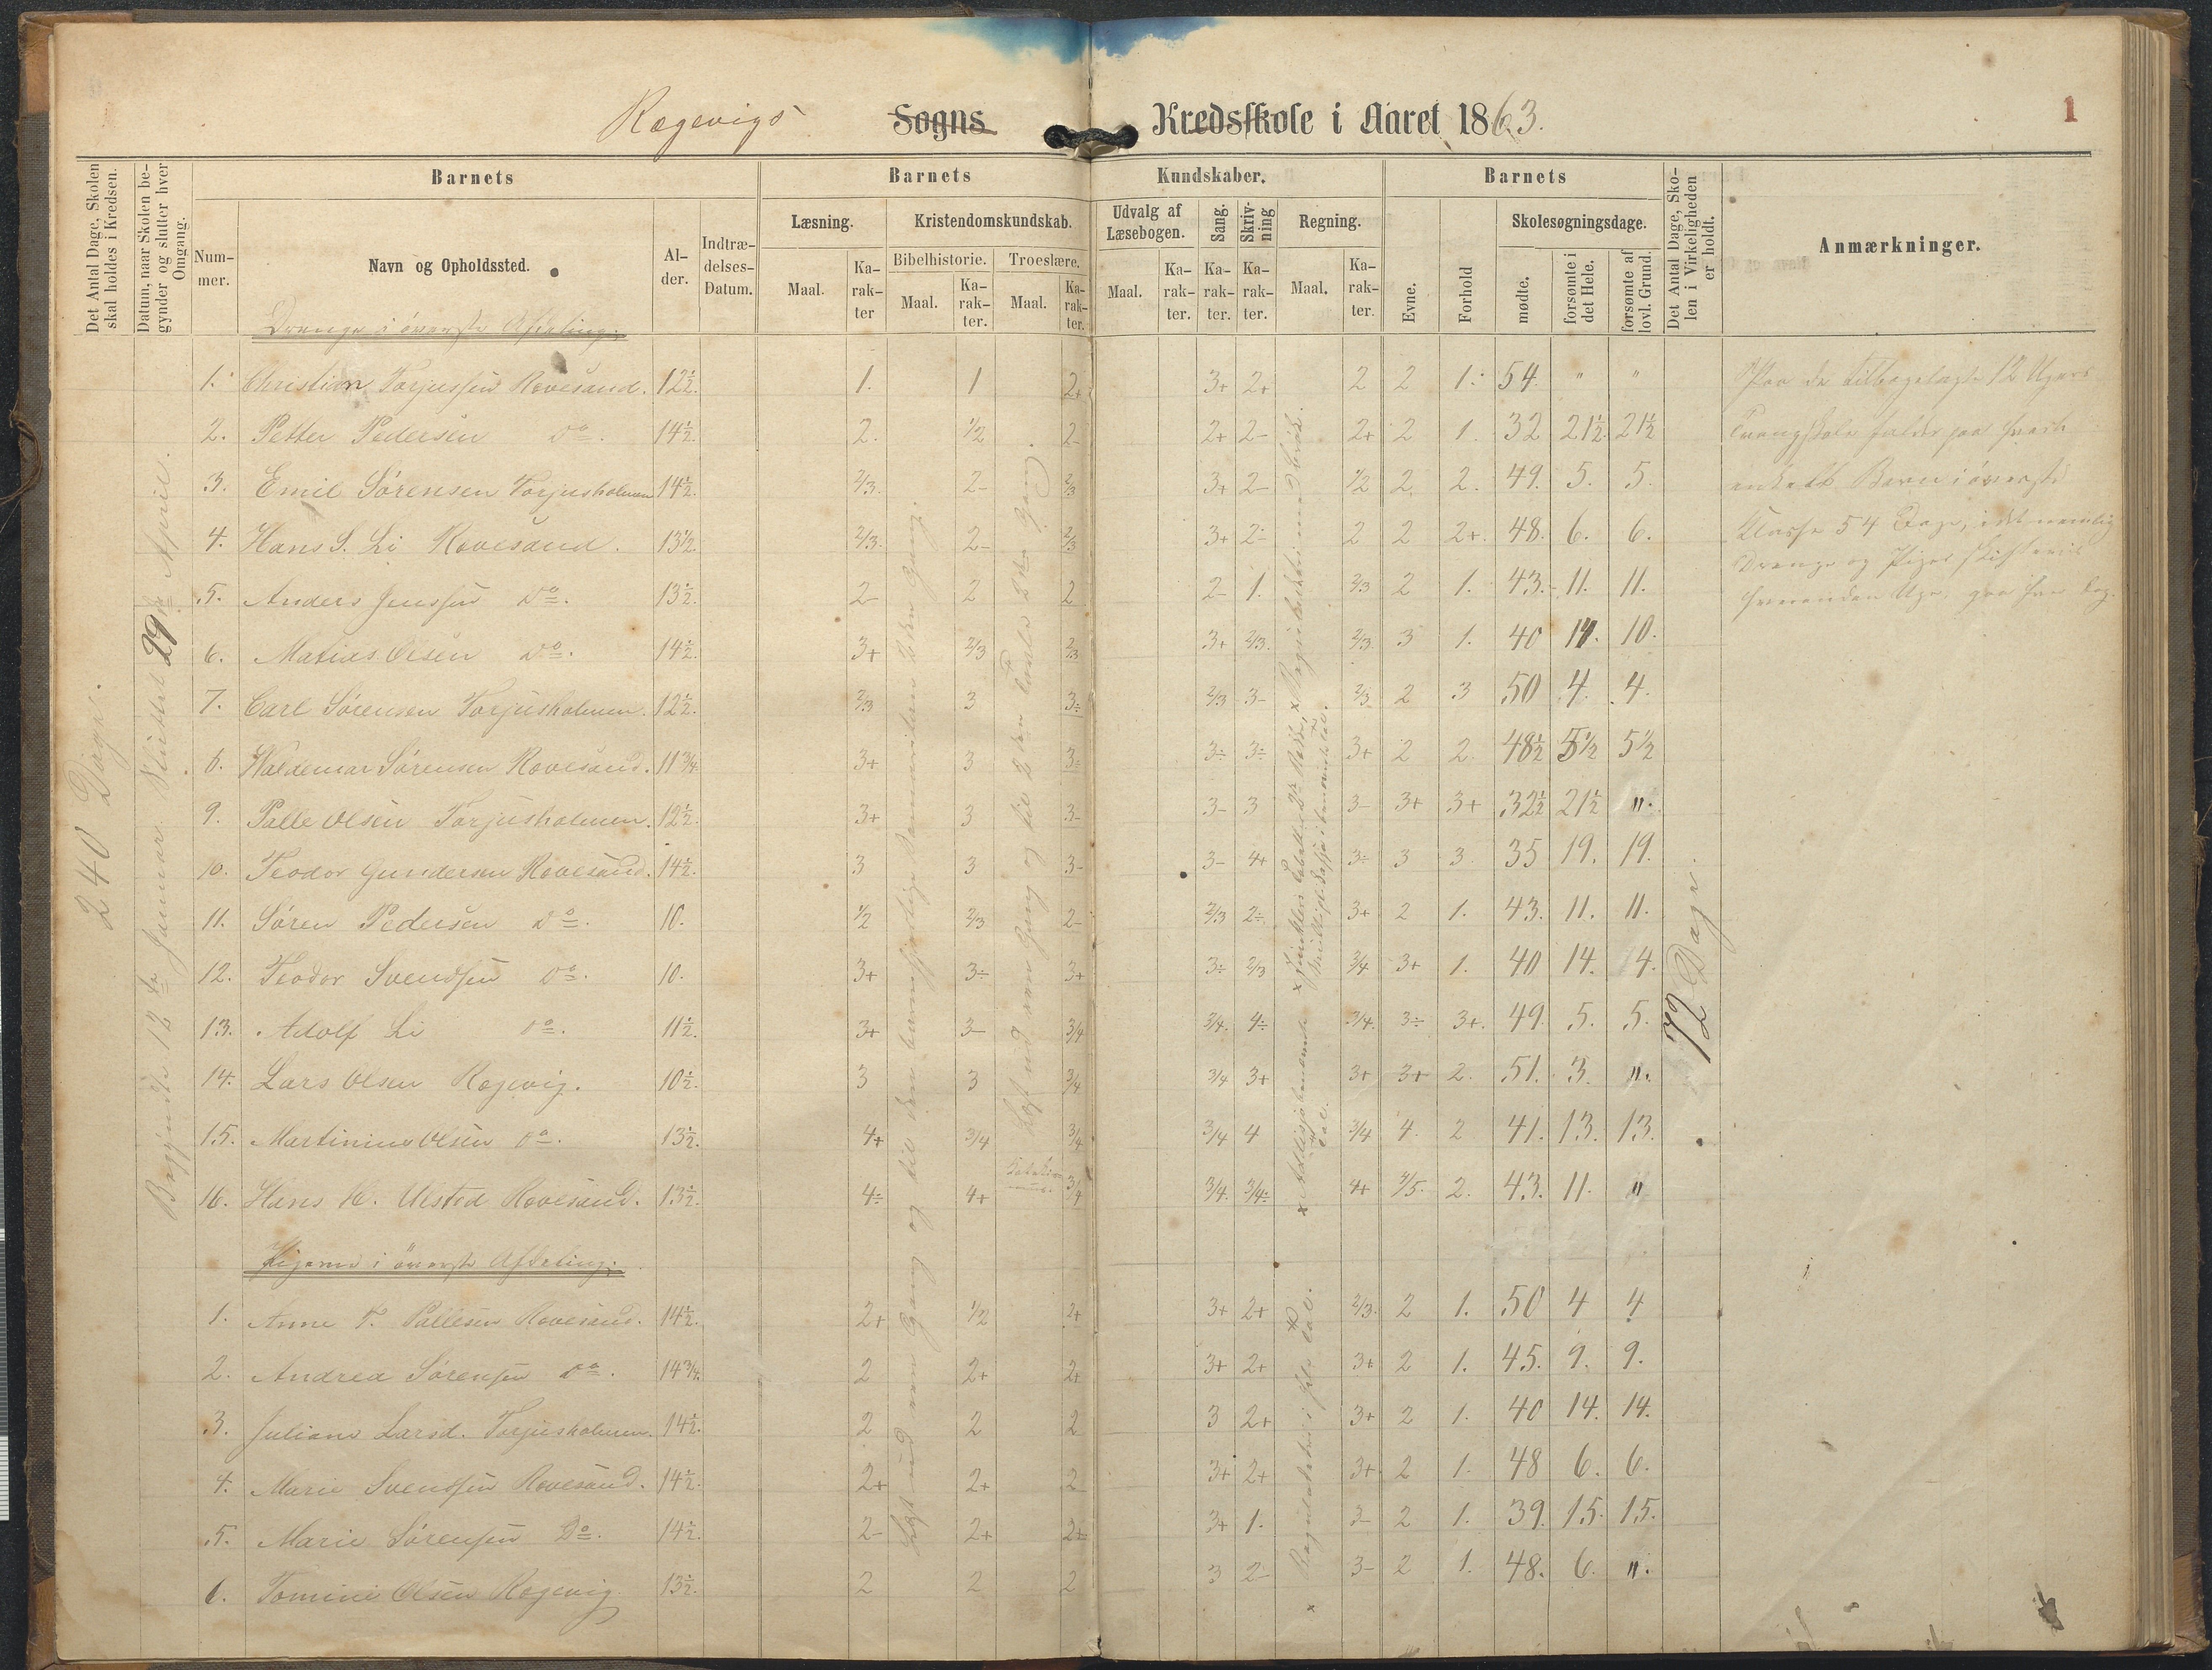 Rægevigs Sogns Kredsskole i Aaret 1863.
1
Det Antal Dage, Skolen skal holdes i Kredsen.
Datum, naar Skolen begynder og slutter hver Omgang.
Barnets
Barnets
Kundskaber.
Barnets
Det Antal Dage, Skolen i Virkeligheden er holdt.
Anmærkninger.
Nummer.
Navn og Opholdssted.
Alder.
Indtrædelses-Datum.
Læsning.
Kristendomskundskab.
Udvalg af Læsebogen.
Sang.
Skrivning
Regning.
Evne.
Forhold
Skolesøgningsdage.
Bibelhistorie.
Troeslære.
Maal.
Karakter
Maal.
Karakter.
Maal.
Karakter.
Maal.
Karakter.
Karakter.
Karakter.
Maal.
Karakter.
mødte.
forsømte i det Hele.
forsømte af lovl. Grund.
Drenge i øverste Afdeling:
1. Christian Torjussen Rovesand. 12½. 1. 1 2+ 3+ 2+ 2 2 1. 54. " "
2. Petter Pedersen Do. 14½. 2. ½ 2- 2+ 2- 2+ 2 1. 32 21½ 21½
3. Emil Sørensen Torjusholmen 14½. 2/3. 2- 2/3 3+ 2- ½ 2 2. 49. 5. 5.
4. Hans S. Li Rovesand. 13½. 2/3. 2- 2/3 3+ 2- 2 2 2+. 48. 6. 6.
5. Anders Jenssen Do. 13½. 2- 2 2 2- 1. 2/3 2 1. 43. 11. 11.
6. Matias Olsen Do. 14½. 3+ 2/3 2/3 3+ 2/3. 2/3. 3 1. 40 14. 10.
7. Carl Sørensen Torjusholmen. 12½. 2/3 3 3÷ 2/3 3- 2/3 2 3 50 4. 4.
8. Waldemar Sørensen Rovesand. 11¾. 3+ 3 3÷ 3÷ 3÷ 3+ 2 2. 48½ 5½ 5½
9. Palle Olsen Torjusholmen. 12½. 3+ 3 3- 3- 3 3- 3+ 3+ 32½ 21½ ".
10. Teodor Gundersen Rovesand. 14½. 3 3 3- 3- 4+ 3÷ 3 3. 35 19. 19.
11. Søren Pedersen Do. 10. ½ 2/3 2- 2/3 2÷ 3+ 2 1. 43. 11. 11.
12. Teodor Svendsen Do. 10. 3+ 3÷ 3+ 3÷ 2/3 3/4 3+ 1. 40 14. 4.
13. Adolf Li Do. 11½. 3+ 3- 3/4 3/4. 4÷ 3/4. 3÷ 3+. 49. 5. 5.
14. Lars Olsen Rægevig. 10½. 3 3 3/4 3/4 3+ 3+ 3+ 2. 51. 3. ".
15. Martinius Olsen Do. 13½. 4+ 3/4 3/4 3/4 4 3/4 4. 2 41. 13. 13.
16. Hans K. Ulsted Rovesand. 13½. 4÷ 4+ 3/4 3/4. 3/4÷ 4+ 4/5. 2. 43. 11. "
Pigerne i øverste Afdeling:
1. Anne T. Pallesen Rovesand. 14½. 2+ ½ 2+ 3+ 2+ 2/3. 2 1. 50 4 4
2. Andrea Sørensen Do. 14¾. 2 2+ 2+ 3+ 2+ 3+ 2 1. 45. 9. 9.
3. Juliane Larsd. Torjusholmen. 14½. 2 2 2 3 2+ 3+ 2 1. 40 14. 14.
4. Marie Svendsen Rovesand. 14½. 2+ 2+ 2 3+ 2+ 3+ 2 1. 48 6. 6.
5. Marie Sørensen Do. 14½. 2- 2+ 2± 3+ 1. 3- 2 1. 39. 15. 15.
6. Tomine Olsen Rægevig 13½. 2 2 2 3 2- 3- 2 1. 48. 6. ".
240 Dage.
Begyndte 12te Januar. Sluttet 29de April.
72 Dage.
Paa de tilbagelagte 12 Ugers
Tvangsskole falder paa hvert
enkelt Barn i øverste
Klasse 54 Dage, idet nemlig
Drenge og Piger skifteviis
hveranden Uge, gaa hver Dag.